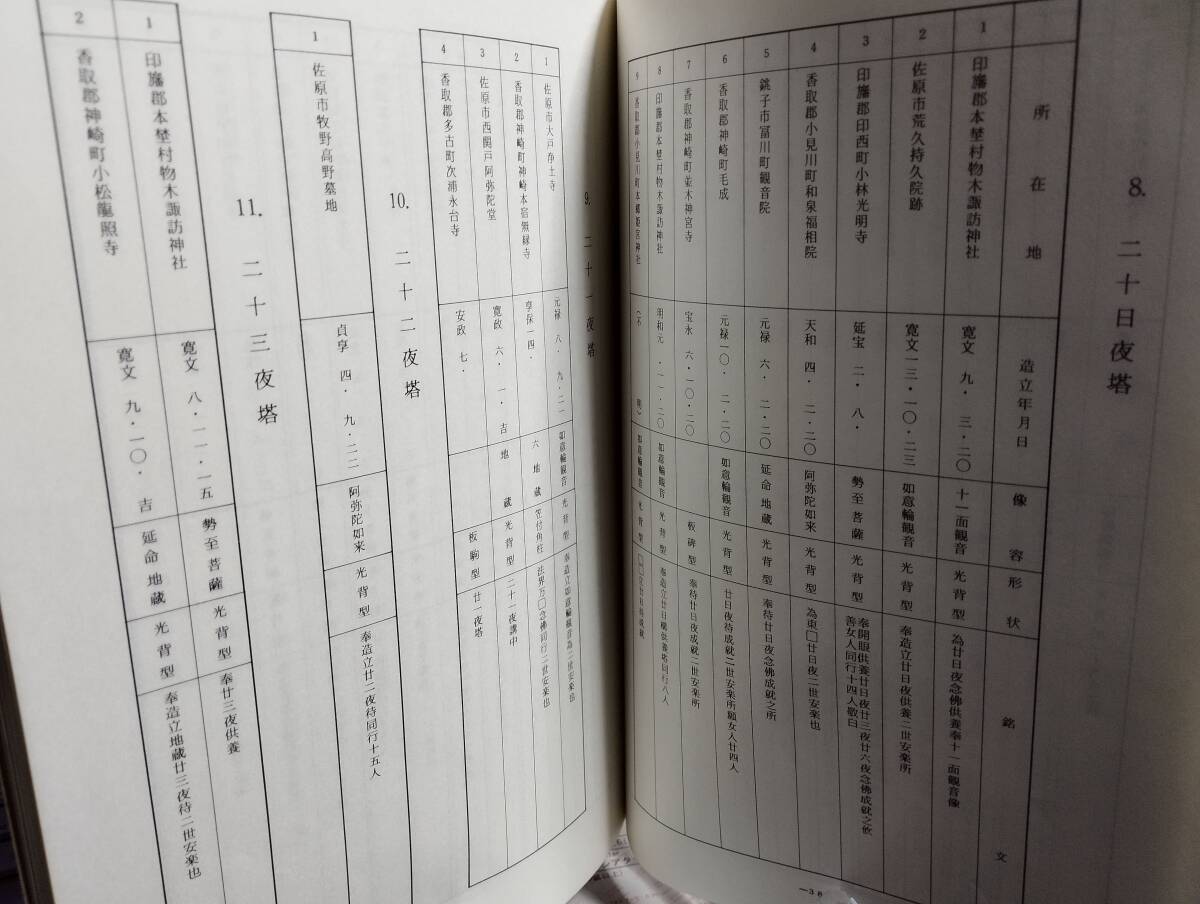 8. 二十日夜塔
所在地 造立年月日 像容 形状 銘文
1 印旛郡本埜村物木諏訪神社 寛文 九・三・二〇 十一面観音 光背型 為廿日夜念佛供養奉十一面観音像
2 佐原市荒久持久院跡 寛文一三・一〇・二三 如意輪観音 光背型 奉造立廿日夜供養二世安楽所
3 印旛郡印西町小林光明寺 延宝 二・八・ 勢至菩薩 光背型 奉開眼供養廿日夜廿三夜廿六夜念佛成就之攸
善女人同行十四人敬白
4 香取郡小見川町和泉福相院 天和 四・二・二〇 阿弥陀如来 光背型 為東□廿日夜二世安楽也
5 銚子市冨川町観音院 元禄 六・二・二〇 延命地蔵 光背型 奉待廿日夜念佛成就之所
6 香取郡神崎町毛成 元禄一〇・二・二〇 如意輪観音 光背型 廿日夜待成就二世安楽所願女人廿四人
7 香取郡神崎町並木神宮寺 宝永 六・一〇・二〇 板碑型 奉待廿日夜成就二世安楽所
8 印旛郡本埜村物木諏訪神社 明和元・一一・二〇 如意輪観音 光背型 奉造立廿日構供養塔同行八人
9 香取郡小見川町本郷姫宮神社 (不明) 如意輪観音 光背型 廿日待成就
―38
9. 二十一夜塔
1 佐原市大戸浄土寺 元禄 八・九・二一 如意輪観音 光背型 奉造立如意輪観音為二世安楽也
2 香取郡神崎町神崎本宿無縁寺 享保一四・ 六地蔵 笠付角柱 法界万□念佛同行二世安楽也
3 佐原市西関戸阿弥陀堂 寛政 六・一・吉 地蔵 光背型 二十一夜講中
4 香取郡多古町次浦永台寺 安政 七・ 板駒型 廿一夜塔
10. 二十二夜塔
1 佐原市牧野高野墓地 貞享 四・九・二二 阿弥陀如来 光背型 奉造立廿二夜待同行十五人
11. 二十三夜塔
1 印旛郡本埜村物木諏訪神社 寛文 八・一一・一五 勢至菩薩 光背型 奉廿三夜供養
2 香取郡神崎町小松龍照寺 寛文 九・一〇・吉 延命地蔵 光背型 奉造立地蔵廿三夜待二世安楽也